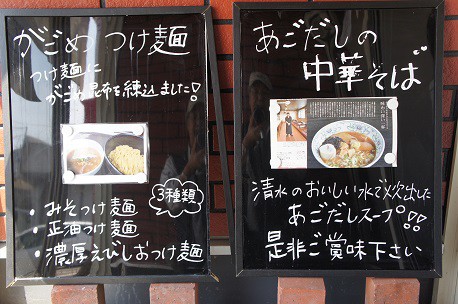 がごめ つけ麺
つけ麺に
がごめ昆布を練込ました!
3種類
・みそつけ麺
・正油つけ麺
・濃厚えびしおつけ麺
あごだしの
中華そば
清水のおいしい水で炊出した
あごだしスープ!!
是非ご賞味下さい